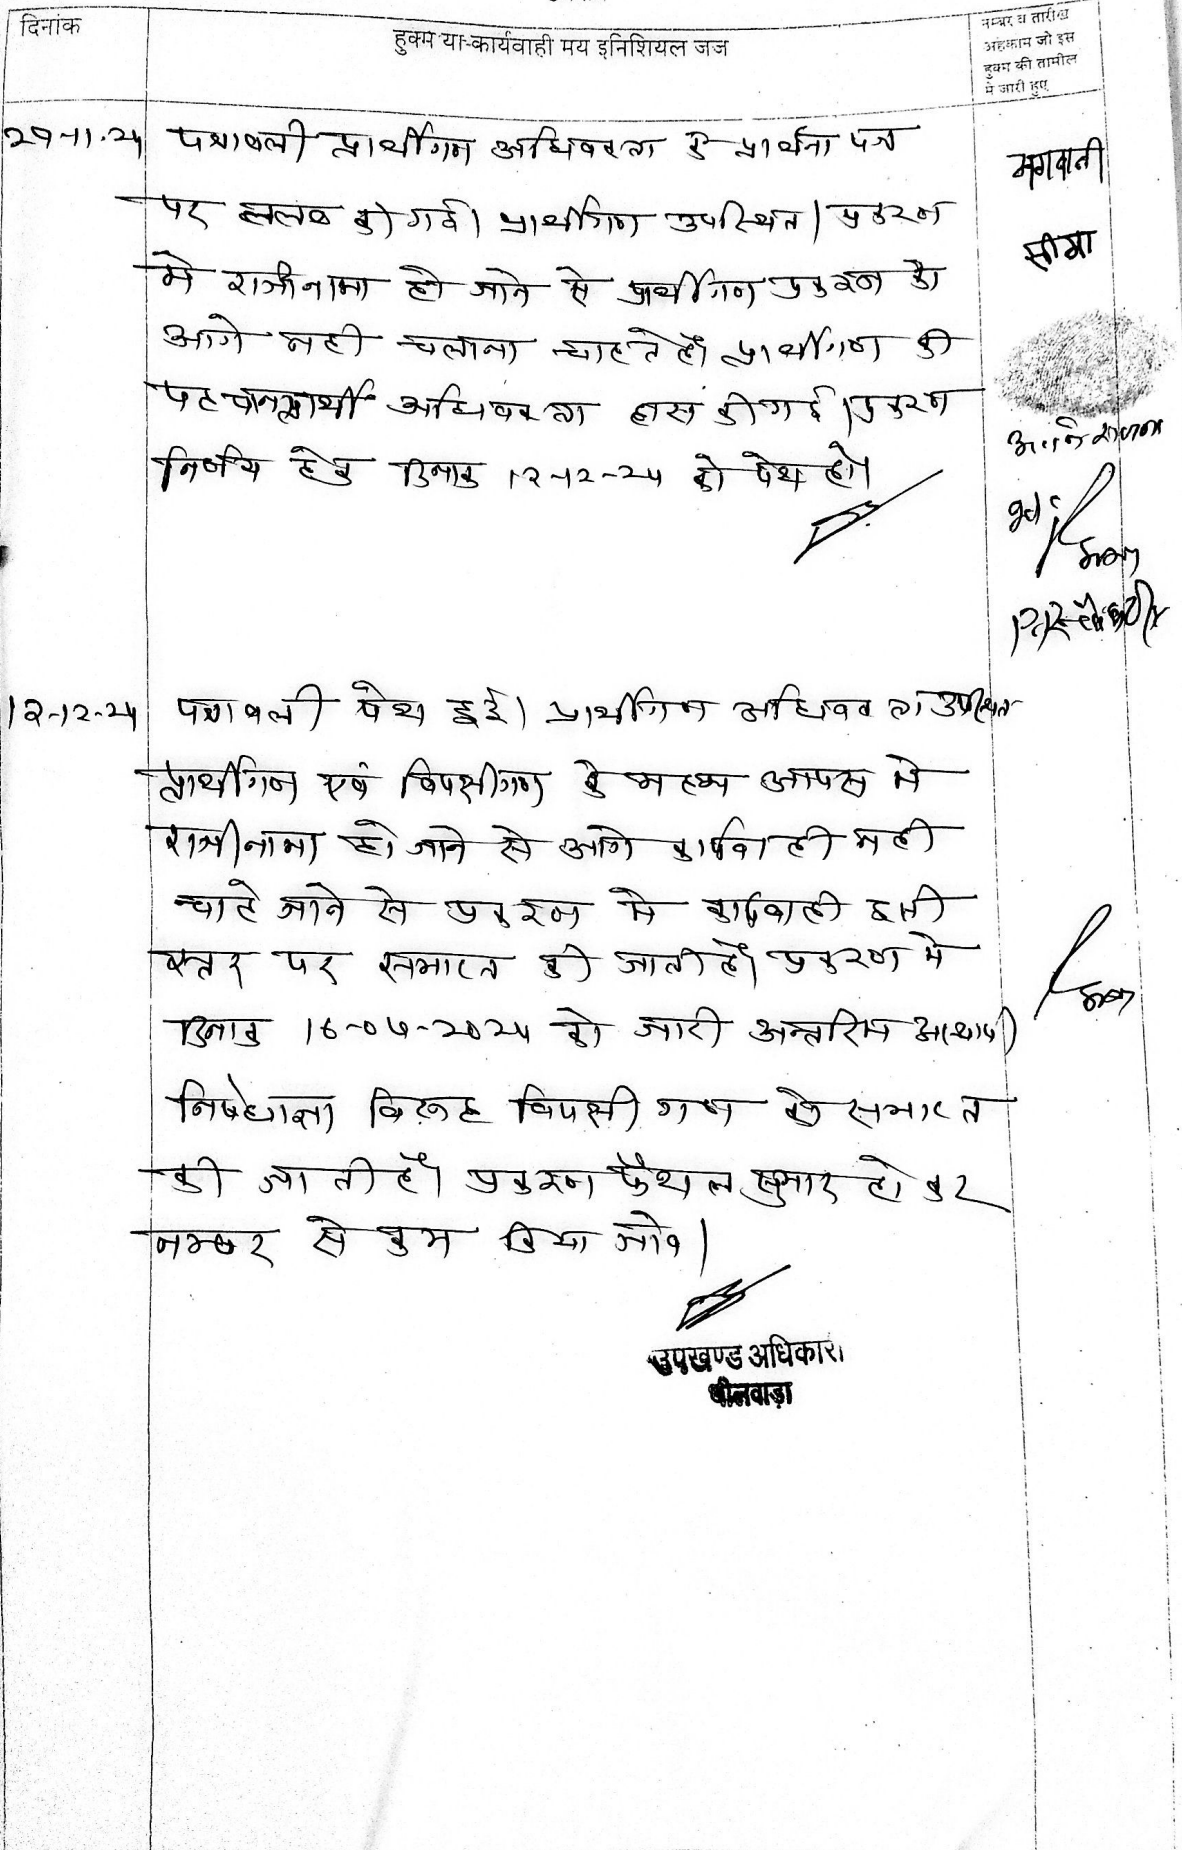 दिनांक
हुक्म या कार्यवाही मय इनिशियल जज
नम्बर व तारीख
अहकाम जो इस
हुक्म की तामील
मे जारी हुए
29-11-24 पत्रावली प्रार्थीगण अधिवक्ता के प्रार्थना पत्र
पर तलब की गई। प्रार्थीगण उपस्थित। प्रकरण
मे राजीनामा हो जाने से प्रार्थीगण प्रकरण को
आगे नही चलाना चाहते है। प्रार्थीगण की
पहचान प्रार्थी अधिवक्ता द्वारा की गई। प्रकरण
निर्णय हेतु दिनांक 12-12-24 को पेश हो।
भगवती
सीमा
12-12-24 पत्रावली पेश हुई। प्रार्थीगण अधिवक्ता उपस्थित
प्रार्थीगण एवं विपक्षीगण के मध्य आपस मे
राजीनामा हो जाने से आगे कार्यवाही नही
चाहे जाने से प्रकरण मे कार्यवाही इसी
स्तर पर समाप्त की जाती है। प्रकरण मे
दिनांक 16-07-2024 को जारी अन्तरिम अस्थायी
निषेधाज्ञा विरूद्ध विपक्षीगण के समाप्त
की जाती है। प्रकरण फैशल शुमार होकर
नम्बर से कम किया जावे।
उपखण्ड अधिकारी
भीलवाड़ा